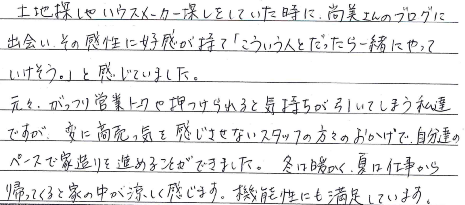 土地探しやハウスメーカー探しをしていた時に、尚美さんのブログに
出会い、その感性に好感が持て「こういう人とだったら一緒にやって
いけそう。」と感じていました。
元々、がっつり営業トークや押つけられると気持ちが引いてしまう私達
ですが、変に商売っ気を感じさせないスタッフの方々のおかげで、自分達の
ペースで家造りを進めることができました。 冬は暖かく、夏は仕事から
帰ってくると家の中が涼しく感じます。機能性にも満足しています。